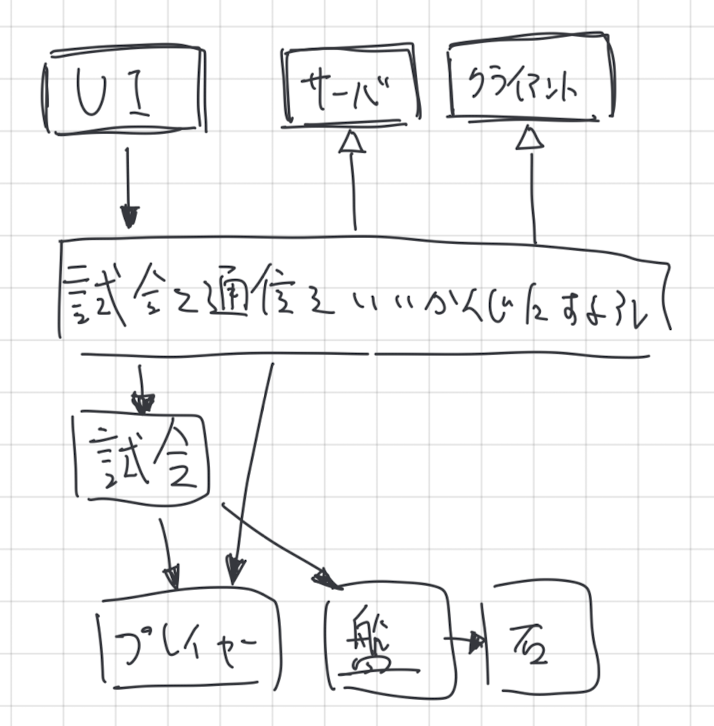 UI
サーバ
クライアント
試合と通信をいいかんじにするよろし
試合
プレイヤー
盤
石